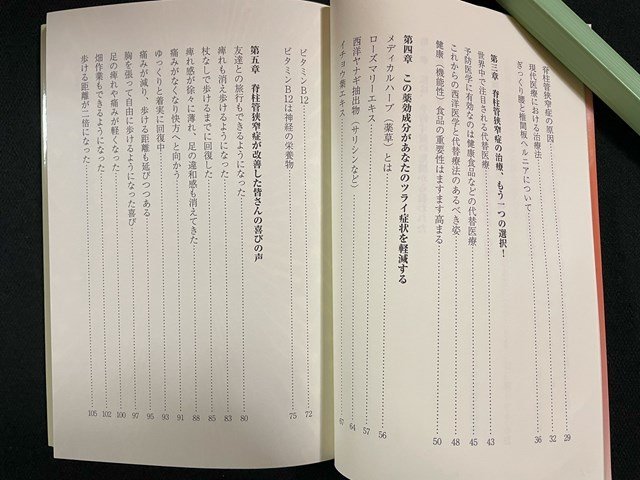 脊柱管狭窄症の原因 29
現代医療における治療法 32
ぎっくり腰と椎間板ヘルニアについて 36
第三章 脊柱管狭窄症の治療、もう一つの選択！
世界中で注目される代替医療 43
予防医学に有効なのは健康食品などの代替医療 45
これからの西洋医学と代替療法のあるべき姿 48
健康（機能性）食品の重要性はますます高まる 50
第四章 この薬効成分があなたのツライ症状を軽減する
メディカルハーブ（薬草）とは 56
ローズマリーエキス 57
西洋ヤナギ抽出物（サリシンなど） 64
イチョウ葉エキス 67
ビタミンB12 72
ビタミンB12は神経の栄養物 75
第五章 脊柱管狭窄症が改善した皆さんの喜びの声
友達との旅行もできるようになった 80
痺れも消え歩けるようになった 83
杖なしで歩けるまでに回復した 85
痺れ感が徐々に薄れ、足の違和感も消えてきた 88
痛みがなくなり快方へと向かう 91
ゆっくりと着実に回復中 93
痛みが減り、歩ける距離も延びつつある 95
胸を張って自由に歩けるようになった喜び 97
足の痺れや痛みが軽くなった 100
畑作業もできるようになった 102
歩ける距離が二倍になった 105